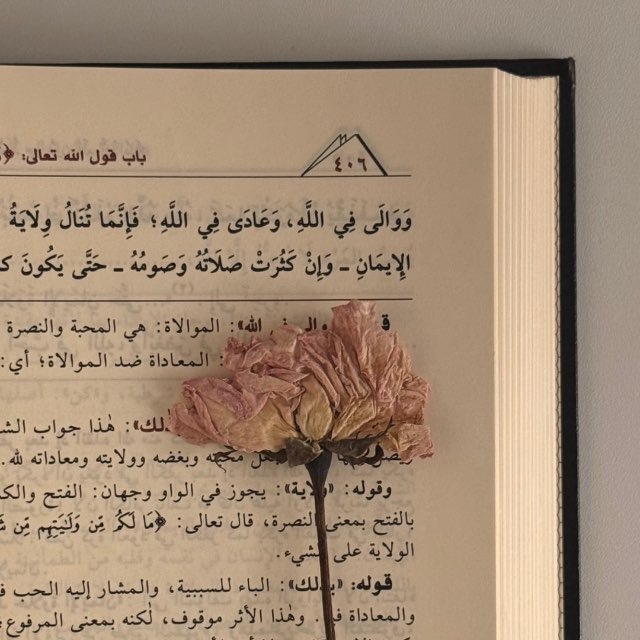 ٤٠٦
باب قول الله تعالى:
وَوَالَى فِي اللَّهِ، وَعَادَى فِي اللَّهِ؛ فَإِنَّمَا تُنَالُ وِلَايَةُ
الإِيمَانِ ـ وَإِنْ كَثُرَتْ صَلَاتُهُ وَصَومُهُ ـ حَتَّى يَكُونَ
الله»: الموالاة: هي المحبة والنصرة
المعاداة ضد الموالاة؛ أي:
هٰذا جواب
وبغضه وولايته ومعاداته لله.
وقوله: يجوز في الواو وجهان: الفتح
بالفتح بمعنى النصرة، قال تعالى: ﴿مَا لَكُم مِّن وَلَـٰيَتِهِم مِّن
الولاية على الشيء.
قوله: «بذلك»: الباء للسببية، والمشار إليه الحب
والمعاداة وهٰذا الأثر موقوف، لٰكنه بمعنى المرفوع